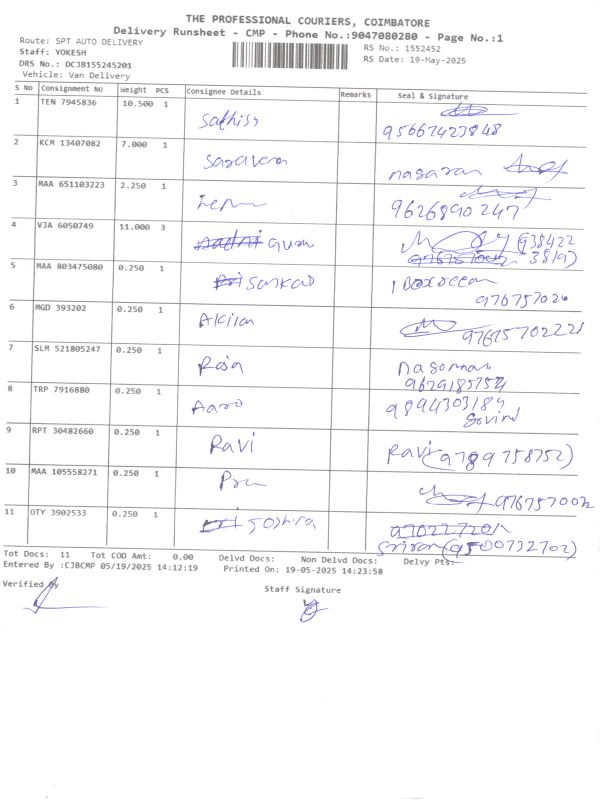 THE PROFESSIONAL COURIERS, COIMBATORE
Delivery Runsheet - CMP - Phone No.:9047080280 - Page No.:1
Route: SPT AUTO DELIVERY
RS No.: 1552452
Staff: YOKESH
RS Date: 19-May-2025
DRS No.: DCJB155245201
Vehicle: Van Delivery
S No Consignment No Weight PCS Consignee Details Remarks Seal & Signature
1 TEN 7945836 10.500 1 Sathiss
95667423848
2 KCM 13407082 7.000 1 Saravera nasaran
3 MAA 651103223 2.250 1
9626890247
4 VJA 6050749 11.000 3 Guru (938422
38191
5 MAA 803475080 0.250 1 Sankar
976757026
6 MGD 393202 0.250 1 97675702221
7 SLM 521805247 0.250 1 Raja
9629185754
8 TRP 7916880 0.250 1 Aaro 9894303189
Govind
9 RPT 30482660 0.250 1 Ravi Ravi (9789758752)
10 MAA 105558271 0.250 1 976757002
11 OTY 3902533 0.250 1 9702272201
Sriram (9500732702)
Tot Docs: 11 Tot COD Amt: 0.00 Delvd Docs: Non Delvd Docs: Delvy Pts:
Entered By :CJBCMP 05/19/2025 14:12:19 Printed On: 19-05-2025 14:23:58
Verified By
Staff Signature